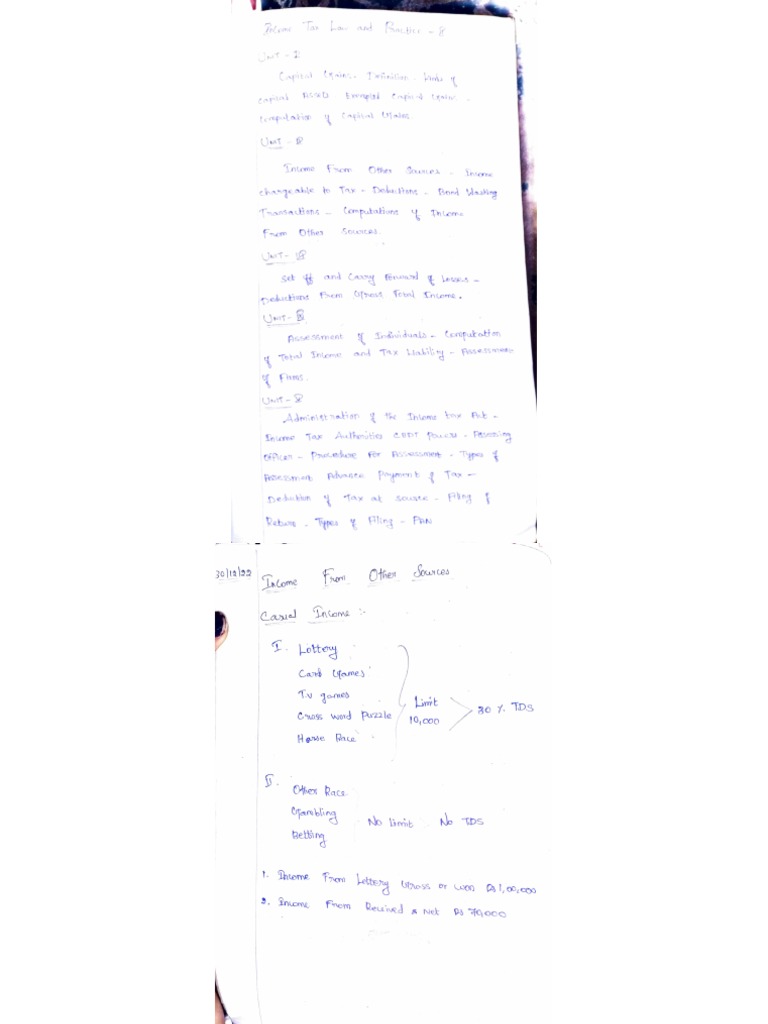 Income Tax Law and Practice - II
Unit - I
Capital Gains - Definition - Kinds of
capital Assets Exempted Capital Gains -
Computation of Capital Gains.
Unit - II
Income From Other Sources - Income
chargeable to Tax - Deductions - Bond Washing
Transactions - Computations of Income
From Other Sources.
Unit - III
Set off and Carry Forward of Losses -
Deductions From Gross Total Income.
Unit -
Assessment of Individuals - Computation
of Total Income and Tax Liability - Assessment
of Firms.
Unit -
Administration of the Income tax Act -
Income Tax Authorities CBDT Powers - Assessing
Officer - Procedure For Assessment - Types of
Assessment Advance Payment of Tax -
Deduction of Tax at source - Filing of
Return - Types of Filing - PAN
30/12/22
Income From Other Sources
Casual Income :-
I. Lottery
Card Games
T.V games
Cross word Puzzle
Horse Race
Limit
10,000
30 % TDS
II. Other Race
Gambling
Betting
No Limit No TDS
1. Income From Lottery Gross or won Rs 1,00,000
2. Income From Received & Net Rs 70,000